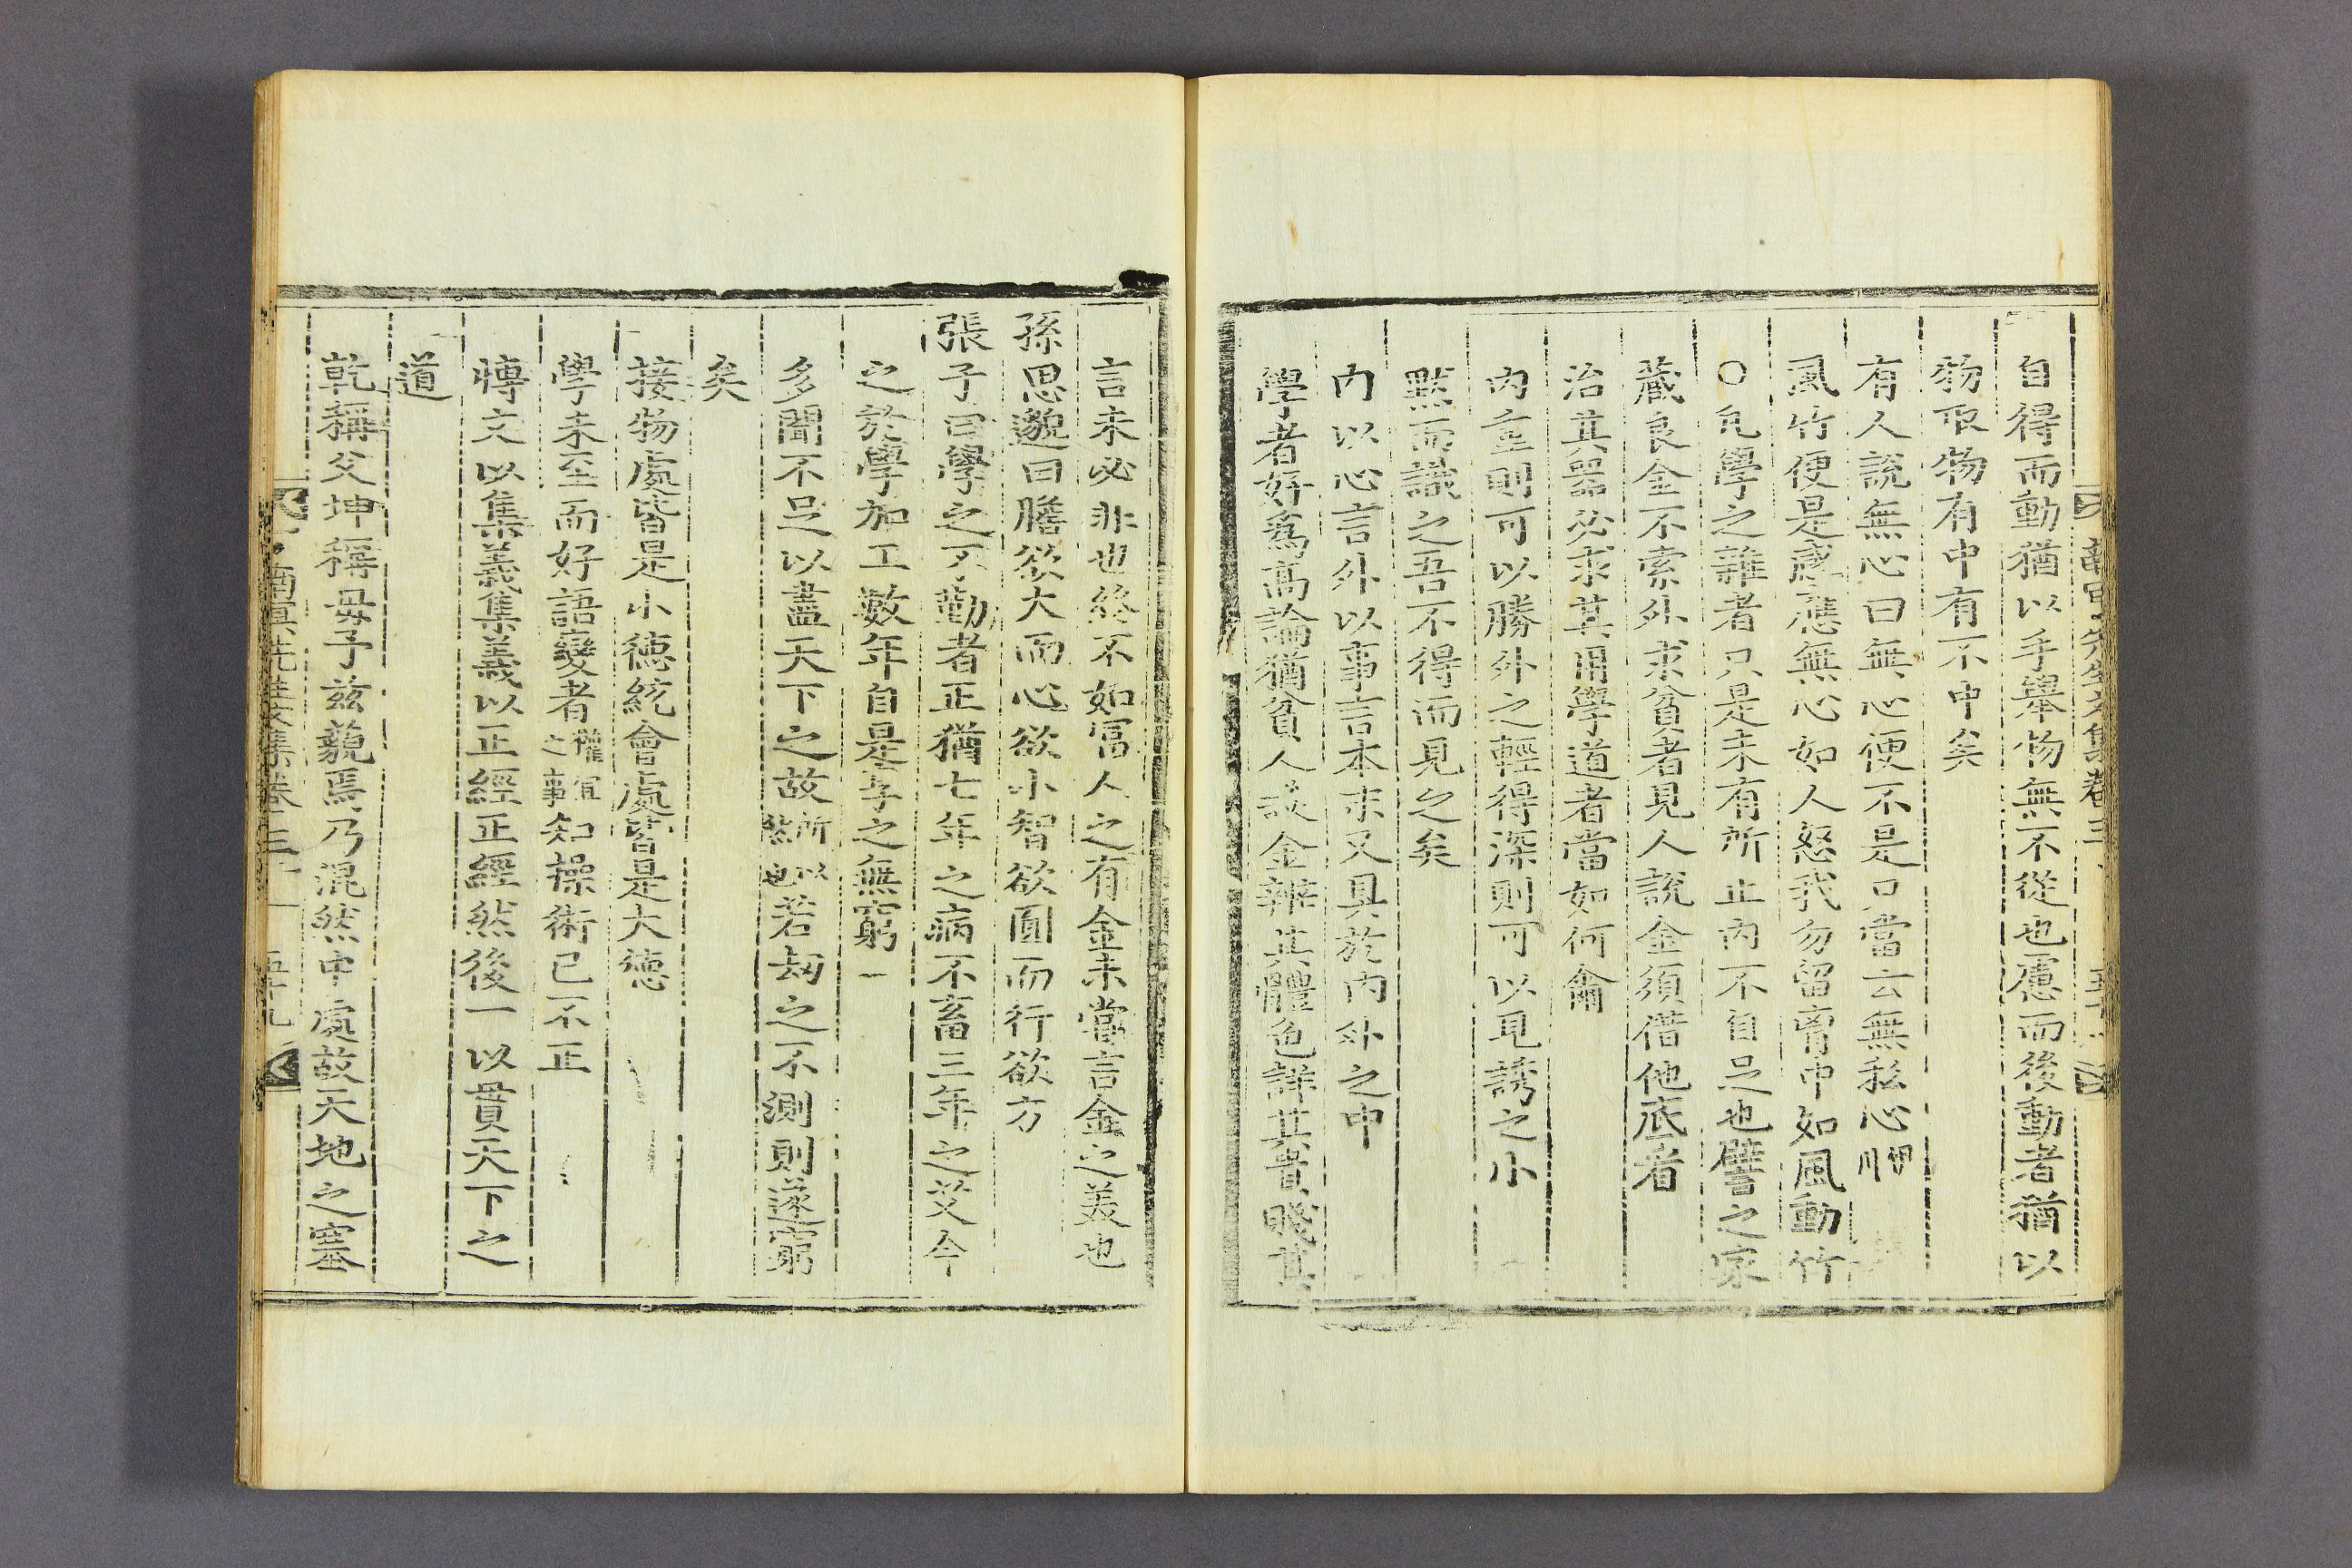 自得而動猶以手舉物無不從也慮而後動者猶以
物取物有中有不中矣
有人說無心曰無心便不是只當云無私心
風竹便是感應無心如人怒我勿留胷中如風動竹
○凡學之雜者只是未有所止內不自足也譬之家
藏良金不索外求貧者見人說金須借他底看
治其器必求其用學道者當如何爾
內重則可以勝外之輕得深則可以見誘之小
默而識之吾不得而見之矣
內以心言外以事言本末又具於內外之中
學者好爲高論猶貧人談金辨其體色詳其貴賤其
言未必非也終不如富人之有金未嘗言金之美也
孫思邈曰膽欲大而心欲小智欲圓而行欲方
張子曰學之不勤者正猶七年之病不畜三年之艾今
之於學加工數年自是享之無窮
多聞不足以盡天下之故所以然也若刼之不測則遂窮
矣
接物處皆是小德統會處皆是大德
學未至而好語變者權宜之事知操術已不正
博文以集義集義以正經正經然後一以貫天下之
道
乾稱父坤稱毋予兹藐焉乃混然中處故天地之塞